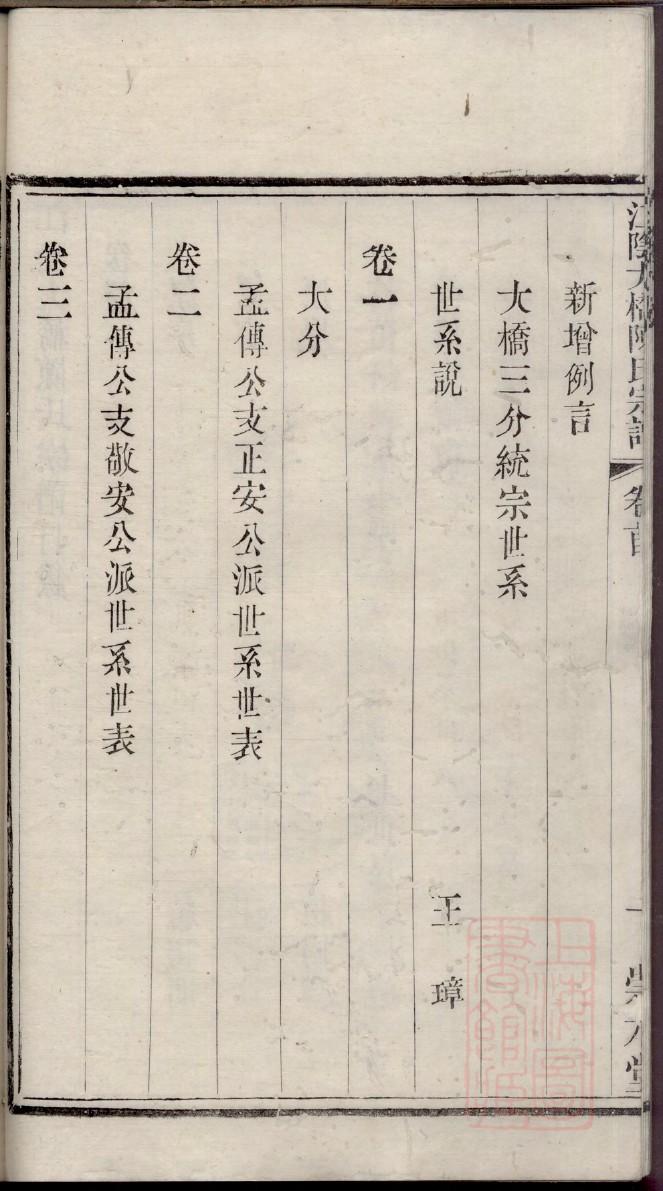 江陰大橋陳氏宗譜 卷首 一
新增例言
大橋三分統宗世系
世系說 王璋
卷一
大分
孟傳公支正安公派世系世表
卷二
孟傳公支敬安公派世系世表
卷三
上海圖書館藏